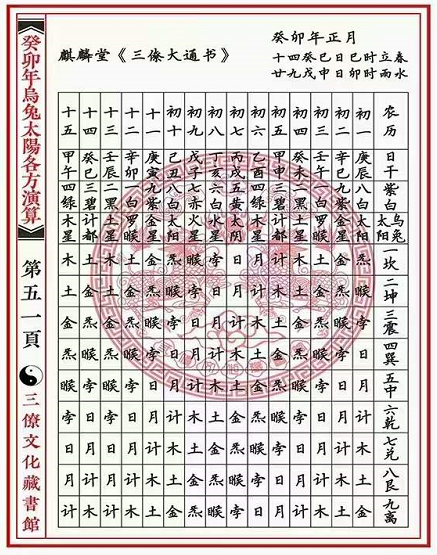 癸卯年烏兔太陽各方演算
第五一頁
三僚文化藏書館
麒麟堂《三僚大通书》
癸卯年正月
十四癸巳日巳时立春
廿九戊申日卯时雨水
农历 日干 紫白 乌兔太阳 一坎 二坤 三震 四巽 五中 六乾 七兑 八艮 九离
初一 庚辰 八白 太阳 炁 睺 孛 日 月 计 木 土 金
初二 辛巳 九紫 金星 金 炁 睺 孛 日 月 计 木 土
初三 壬午 一白 罗睺 土 金 炁 睺 孛 日 月 计 木
初四 癸未 二黑 土星 木 土 金 炁 睺 孛 日 月 计
初五 甲申 三碧 计都 计 木 土 金 炁 睺 孛 日 月
初六 乙酉 四绿 木星 月 计 木 土 金 炁 睺 孛 日
初七 丙戌 五黄 太阴 日 月 计 木 土 金 炁 睺 孛
初八 丁亥 六白 水星 孛 日 月 计 木 土 金 炁 睺
初九 戊子 七赤 火星 睺 孛 日 月 计 木 土 金 炁
初十 己丑 八白 太阳 炁 睺 孛 日 月 计 木 土 金
十一 庚寅 九紫 金星 金 炁 睺 孛 日 月 计 木 土
十二 辛卯 一白 罗睺 土 金 炁 睺 孛 日 月 计 木
十三 壬辰 二黑 土星 木 土 金 炁 睺 孛 日 月 计
十四 癸巳 三碧 计都 土 金 炁 睺 孛 日 月 计 木
十五 甲午 四绿 木星 木 土 金 炁 睺 孛 日 月 计